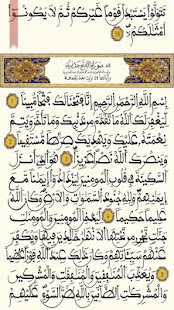 تَتَوَلَّوْا يَسْتَبْدِلْ قَوْمًا غَيْرَكُمْ ثُمَّ لَا يَكُونُوا
أَمْثَالَكُمْ
سورة الفتح مدنية
بِسْمِ اللَّهِ الرَّحْمَٰنِ الرَّحِيمِ إِنَّا فَتَحْنَا لَكَ فَتْحًا مُبِينًا
لِيَغْفِرَ لَكَ اللَّهُ مَا تَقَدَّمَ مِنْ ذَنْبِكَ وَمَا تَأَخَّرَ وَيُتِمَّ
نِعْمَتَهُ عَلَيْكَ وَيَهْدِيَكَ صِرَاطًا مُسْتَقِيمًا
وَيَنْصُرَكَ اللَّهُ نَصْرًا عَزِيزًا هُوَ الَّذِي أَنْزَلَ
السَّكِينَةَ فِي قُلُوبِ الْمُؤْمِنِينَ لِيَزْدَادُوا إِيمَانًا مَعَ
إِيمَانِهِمْ وَلِلَّهِ جُنُودُ السَّمَٰوَاتِ وَالْأَرْضِ وَكَانَ اللَّهُ
عَلِيمًا حَكِيمًا لِيُدْخِلَ الْمُؤْمِنِينَ وَالْمُؤْمِنَاتِ
جَنَّاتٍ تَجْرِي مِنْ تَحْتِهَا الْأَنْهَارُ خَالِدِينَ فِيهَا وَيُكَفِّرَ
عَنْهُمْ سَيِّئَاتِهِمْ وَكَانَ ذَٰلِكَ عِنْدَ اللَّهِ فَوْزًا عَظِيمًا
وَيُعَذِّبَ الْمُنَافِقِينَ وَالْمُنَافِقَاتِ وَالْمُشْرِكِينَ
وَالْمُشْرِكَاتِ الظَّانِّينَ بِاللَّهِ ظَنَّ السَّوْءِ عَلَيْهِمْ